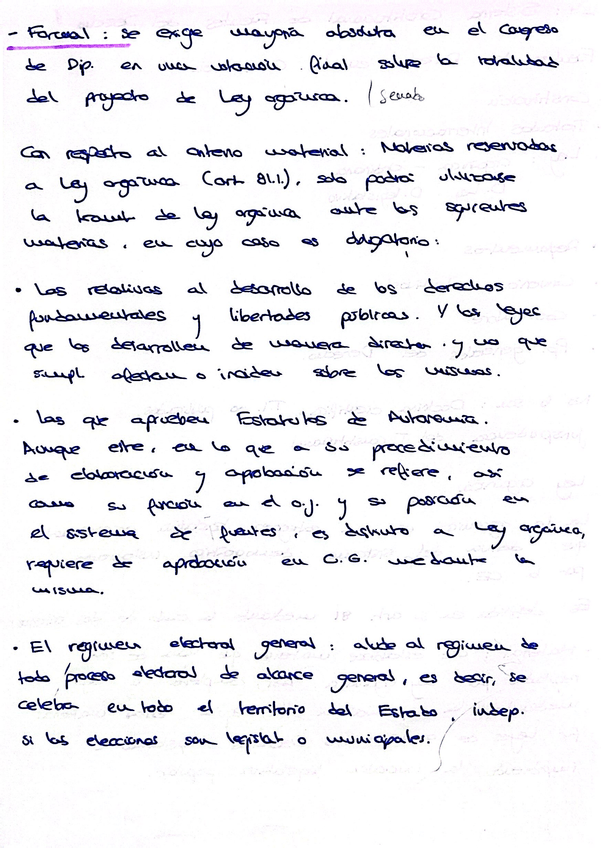 - Formal : se exige mayoría absoluta en el Congreso
de Dip. en una votación final sobre la totalidad
del proyecto de Ley orgánica. / Senado
Con respecto al criterio material : Materias reservadas
a Ley orgánica (art 81.1.), solo podrá utilizarse
la de Ley orgánica ante las siguientes
materias, en cuyo caso es obligatorio:
• Las relativas al desarrollo de los derechos
fundamentales y libertades públicas. Y las leyes
que los desarrollen de manera directa y no que
simpl afectan o inciden sobre los mismos.
• Las que aprueben Estatutos de Autonomía.
Aunque este, en lo que a su procedimiento
de elaboración y aprobación se refiere, así
como su función en el o.j. y su posición en
el sistema de fuentes, es distinto a Ley orgánica,
requiere de aprobación en C.G. mediante la
misma.
• El regimen electoral general : alude al regimen de
todo proceso electoral de alcance general, es decir, se
celebra en todo el territorio del Estado, indep.
si las elecciones son legislat o municipales.